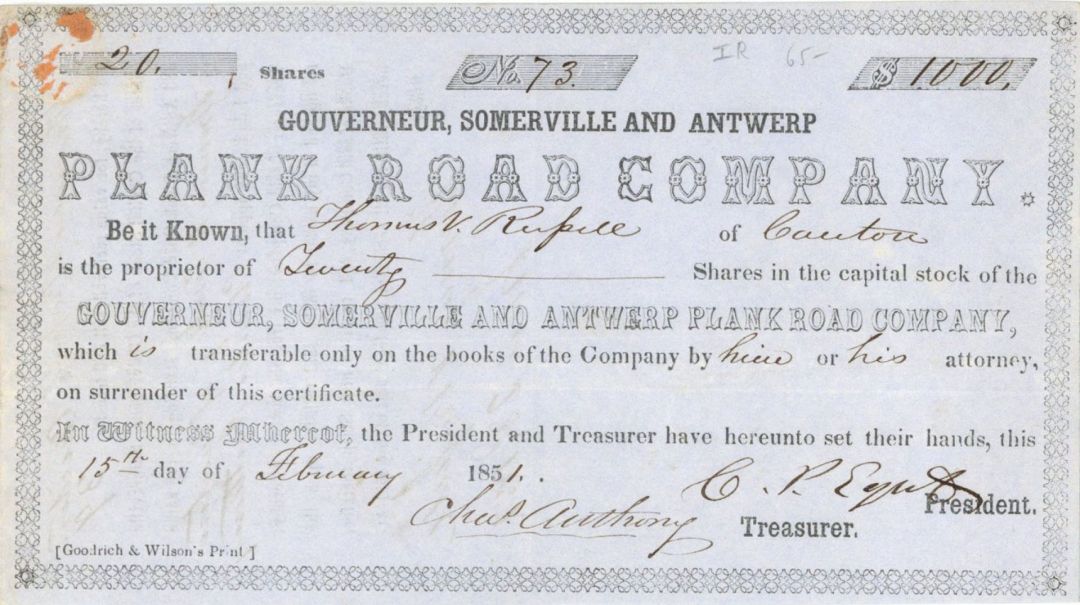 20. Shares No. 73. IR 65- $ 1000,
GOUVERNEUR, SOMERVILLE AND ANTWERP
PLANK ROAD COMPANY.
Be it Known, that Thomas V. Russell of Canton
is the proprietor of Twenty Shares in the capital stock of the
GOUVERNEUR, SOMERVILLE AND ANTWERP PLANK ROAD COMPANY,
which is transferable only on the books of the Company by him or his attorney,
on surrender of this certificate.
In Witness Whereof, the President and Treasurer have hereunto set their hands, this
15th day of February 1851.
C. P. President.
Chas. Anthony Treasurer.
[Goodrich & Wilson's Print]